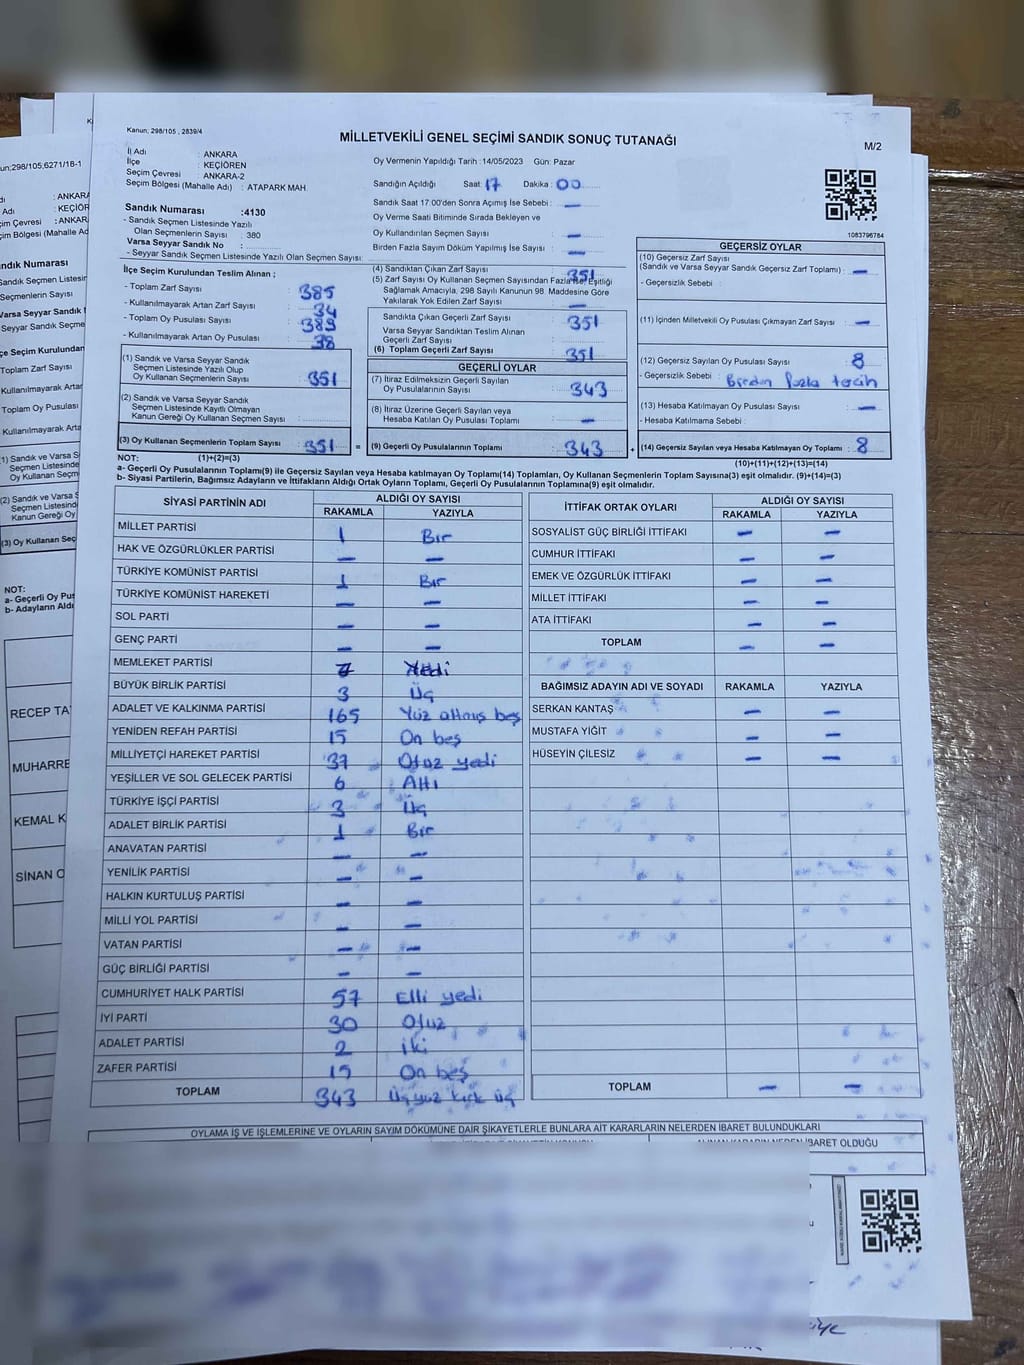 Kanun, 298/105 , 2839/4
MİLLETVEKİLİ GENEL SEÇİMİ SANDIK SONUÇ TUTANAĞI
M/2
İl Adı : ANKARA
İlçe : KEÇİÖREN
Seçim Çevresi : ANKARA-2
Seçim Bölgesi (Mahalle Adı) : ATAPARK MAH.
Oy Vermenin Yapıldığı Tarih : 14/05/2023 Gün: Pazar
Sandığın Açıldığı Saat: 17 Dakika : 00
Sandık Saat 17:00'den Sonra Açımış İse Sebebi : —
Oy Verme Saati Bitiminde Sırada Bekleyen ve
Oy Kullandırılan Seçmen Sayısı : —
Birden Fazla Sayım Döküm Yapılmış İse Sayısı : —
1083796784
Sandık Numarası :4130
- Sandık Seçmen Listesinde Yazılı
Olan Seçmenlerin Sayısı : 380
Varsa Seyyar Sandık No :
- Seyyar Sandık Seçmen Listesinde Yazılı Olan Seçmen Sayısı:
İlçe Seçim Kurulundan Teslim Alınan ;
- Toplam Zarf Sayısı : 385
- Kullanılmayarak Artan Zarf Sayısı : 34
- Toplam Oy Pusulası Sayısı : 389
- Kullanılmayarak Artan Oy Pusulası : 38
(1) Sandık ve Varsa Seyyar Sandık
Seçmen Listesinde Yazılı Olup
Oy Kullanan Seçmenlerin Sayısı : 351
(2) Sandık ve Varsa Seyyar Sandık
Seçmen Listesinde Kayıtlı Olmayan
Kanun Gereği Oy Kullanan Seçmen Sayısı :
(3) Oy Kullanan Seçmenlerin Toplam Sayısı : 351 =
(4) Sandıktan Çıkan Zarf Sayısı : 351
(5) Zarf Sayısı Oy Kullanan Seçmen Sayısından Fazla İse, Eşitliği
Sağlamak Amacıyla, 298 Sayılı Kanunun 98. Maddesine Göre
Yakılarak Yok Edilen Zarf Sayısı : —
Sandıkta Çıkan Geçerli Zarf Sayısı : 351
Varsa Seyyar Sandıktan Teslim Alınan
Geçerli Zarf Sayısı :
(6) Toplam Geçerli Zarf Sayısı : 351
GEÇERLİ OYLAR
(7) İtiraz Edilmeksizin Geçerli Sayılan
Oy Pusulalarının Sayısı : 343
(8) İtiraz Üzerine Geçerli Sayılan veya
Hesaba Katılan Oy Pusulası Sayısı : —
(9) Geçerli Oy Pusulalarının Toplamı : 343 +
GEÇERSİZ OYLAR
(10) Geçersiz Zarf Sayısı
(Sandık ve Varsa Seyyar Sandık Geçersiz Zarf Toplamı) : —
- Geçersizlik Sebebi :
(11) İçinden Milletvekili Oy Pusulası Çıkmayan Zarf Sayısı : —
(12) Geçersiz Sayılan Oy Pusulası Sayısı : 8
- Geçersizlik Sebebi : Birden fazla tercih
(13) Hesaba Katılmayan Oy Pusulası Sayısı : —
- Hesaba Katılmama Sebebi :
(14) Geçersiz Sayılan veya Hesaba Katılmayan Oy Toplamı : 8
NOT: (1)+(2)=(3)
(10)+(11)+(12)+(13)=(14)
a- Geçerli Oy Pusulalarının Toplamı(9) ile Geçersiz Sayılan veya Hesaba katılmayan Oy Toplamı(14) Toplamları, Oy Kullanan Seçmenlerin Toplam Sayısına(3) eşit olmalıdır. (9)+(14)=(3)
b- Siyasi Partilerin, Bağımsız Adayların ve İttifakların Aldığı Ortak Oyların Toplamı, Geçerli Oy Pusulalarının Toplamına(9) eşit olmalıdır.
SİYASİ PARTİNİN ADI ALDIĞI OY SAYISI
RAKAMLA YAZIYLA
MİLLET PARTİSİ 1 Bir
HAK VE ÖZGÜRLÜKLER PARTİSİ — —
TÜRKİYE KOMÜNİST PARTİSİ 1 Bir
TÜRKİYE KOMÜNİST HAREKETİ — —
SOL PARTİ — —
GENÇ PARTİ — —
MEMLEKET PARTİSİ 7 Yedi
BÜYÜK BİRLİK PARTİSİ 3 Üç
ADALET VE KALKINMA PARTİSİ 165 Yüz altmış beş
YENİDEN REFAH PARTİSİ 15 On beş
MİLLİYETÇİ HAREKET PARTİSİ 37 Otuz yedi
YEŞİLLER VE SOL GELECEK PARTİSİ 6 Altı
TÜRKİYE İŞÇİ PARTİSİ 3 Üç
ADALET BİRLİK PARTİSİ 1 Bir
ANAVATAN PARTİSİ — —
YENİLİK PARTİSİ — —
HALKIN KURTULUŞ PARTİSİ — —
MİLLİ YOL PARTİSİ — —
VATAN PARTİSİ — —
GÜÇ BİRLİĞİ PARTİSİ — —
CUMHURİYET HALK PARTİSİ 57 Elli yedi
İYİ PARTİ 30 Otuz
ADALET PARTİSİ 2 İki
ZAFER PARTİSİ 15 On beş
TOPLAM 343 Üçyüz kırk üç
İTTİFAK ORTAK OYLARI ALDIĞI OY SAYISI
RAKAMLA YAZIYLA
SOSYALİST GÜÇ BİRLİĞİ İTTİFAKI — —
CUMHUR İTTİFAKI — —
EMEK VE ÖZGÜRLÜK İTTİFAKI — —
MİLLET İTTİFAKI — —
ATA İTTİFAKI — —
TOPLAM — —
BAĞIMSIZ ADAYIN ADI VE SOYADI RAKAMLA YAZIYLA
SERKAN KANTAŞ — —
MUSTAFA YİĞİT — —
HÜSEYİN ÇİLESİZ — —
TOPLAM — —
OYLAMA İŞ VE İŞLEMLERİNE VE OYLARIN SAYIM DÖKÜMÜNE DAİR ŞİKAYETLERLE BUNLARA AİT KARARLARIN NELERDEN İBARET BULUNDUKLARI
ALINAN KARARIN NEDEN İBARET OLDUĞU